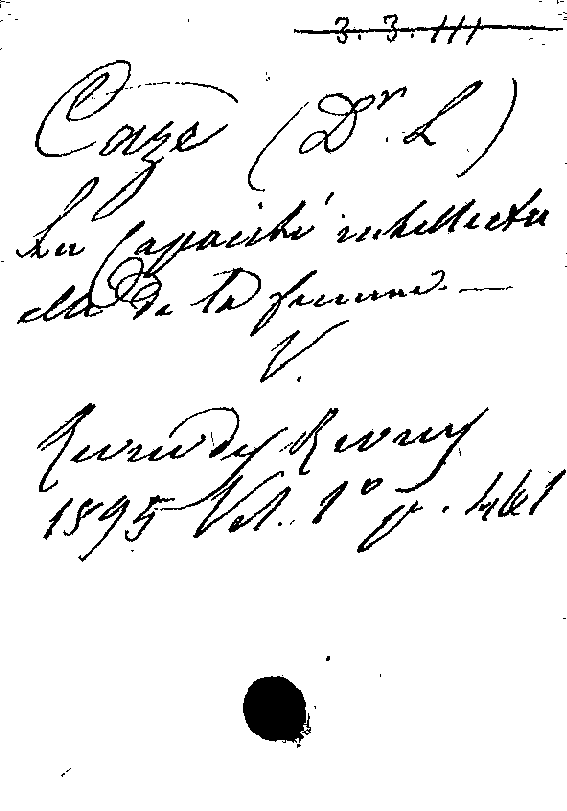 3.3.111
Caze (Dr. L.)
La Capacité intellectu
elle de la femme. —
V.
Revue des Revues
1895 Vol. 1º p. 461